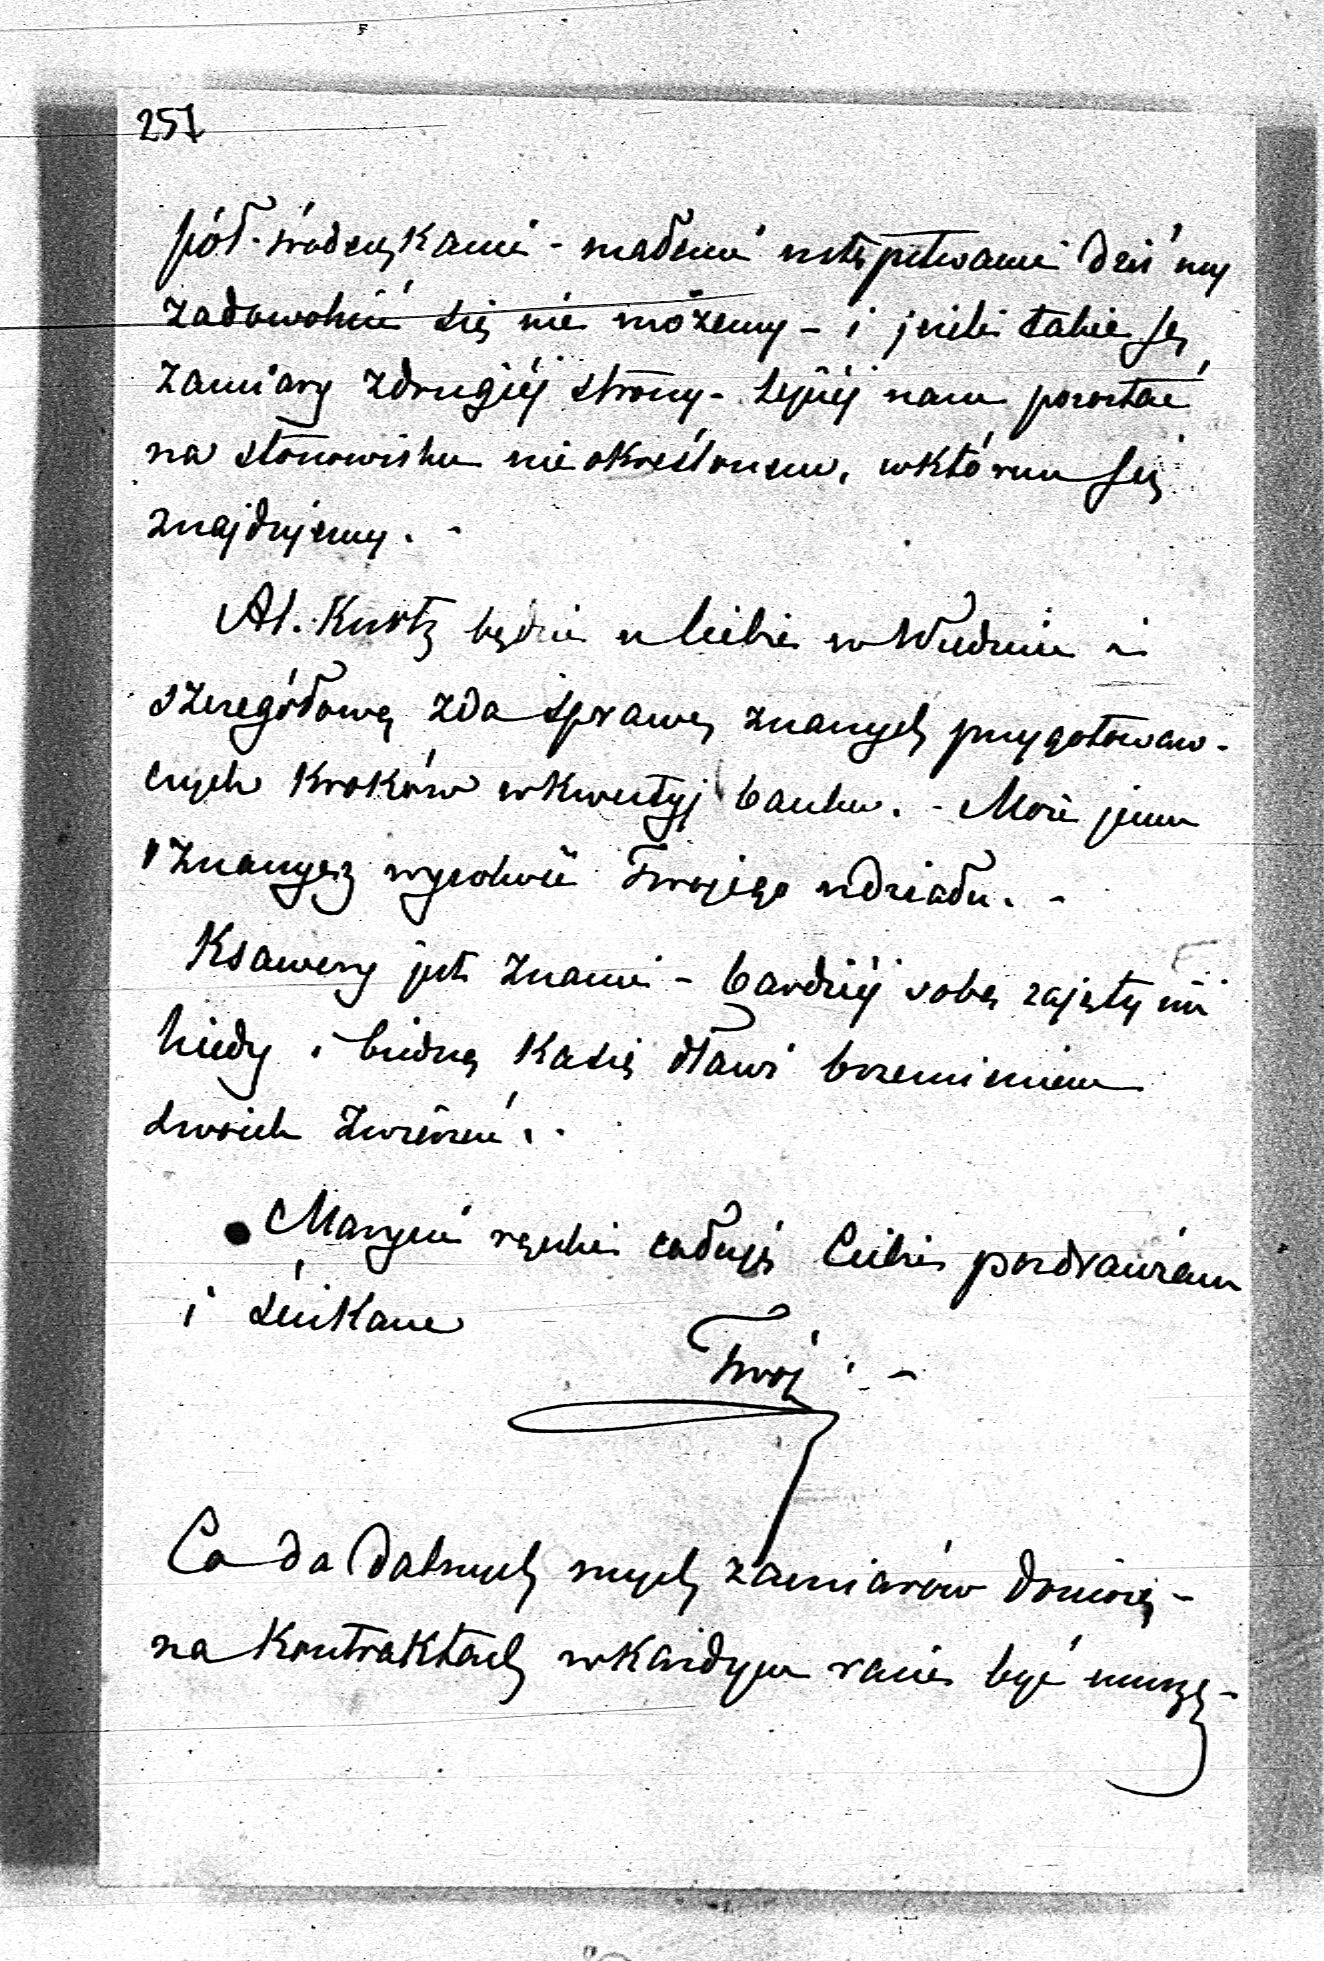 257
pół-środeczkami - małemi ustępstwami dziś my
zadowolnić się nie możemy - i jeżeli takie są
zamiary z drugiéj strony - lepiéj nam pozostać
na stanowisku nieokreślonem, w którem się
znajdujemy. -
Al. Kurtz będzie u Ciebie w Wiedniu i
szczegółową zda sprawę z naszych przygotowaw-
czych kroków w kwestyj banku. - Może jemu
wyrobić Twojego udziału. -
Ksawery jest z nami - bardziéj sobą zajęty niż
kiedy i biedną Kasię dławi brzemieniem
swoich zwierzeń. -
Maryni rączki całuję Ciebie pozdrawiam
i ściskam
Twój : -
Co do dalszych mych zamiarów doniosę -
na Kontraktach w każdym razie być muszę -